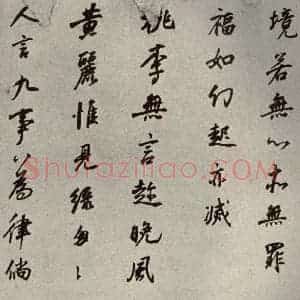 境若無心亦無罪
福如幻起亦滅
桃李無言趂晚風
黃麗惟見綠匆々
人言九事八為律倘
Shufaziliao.COM